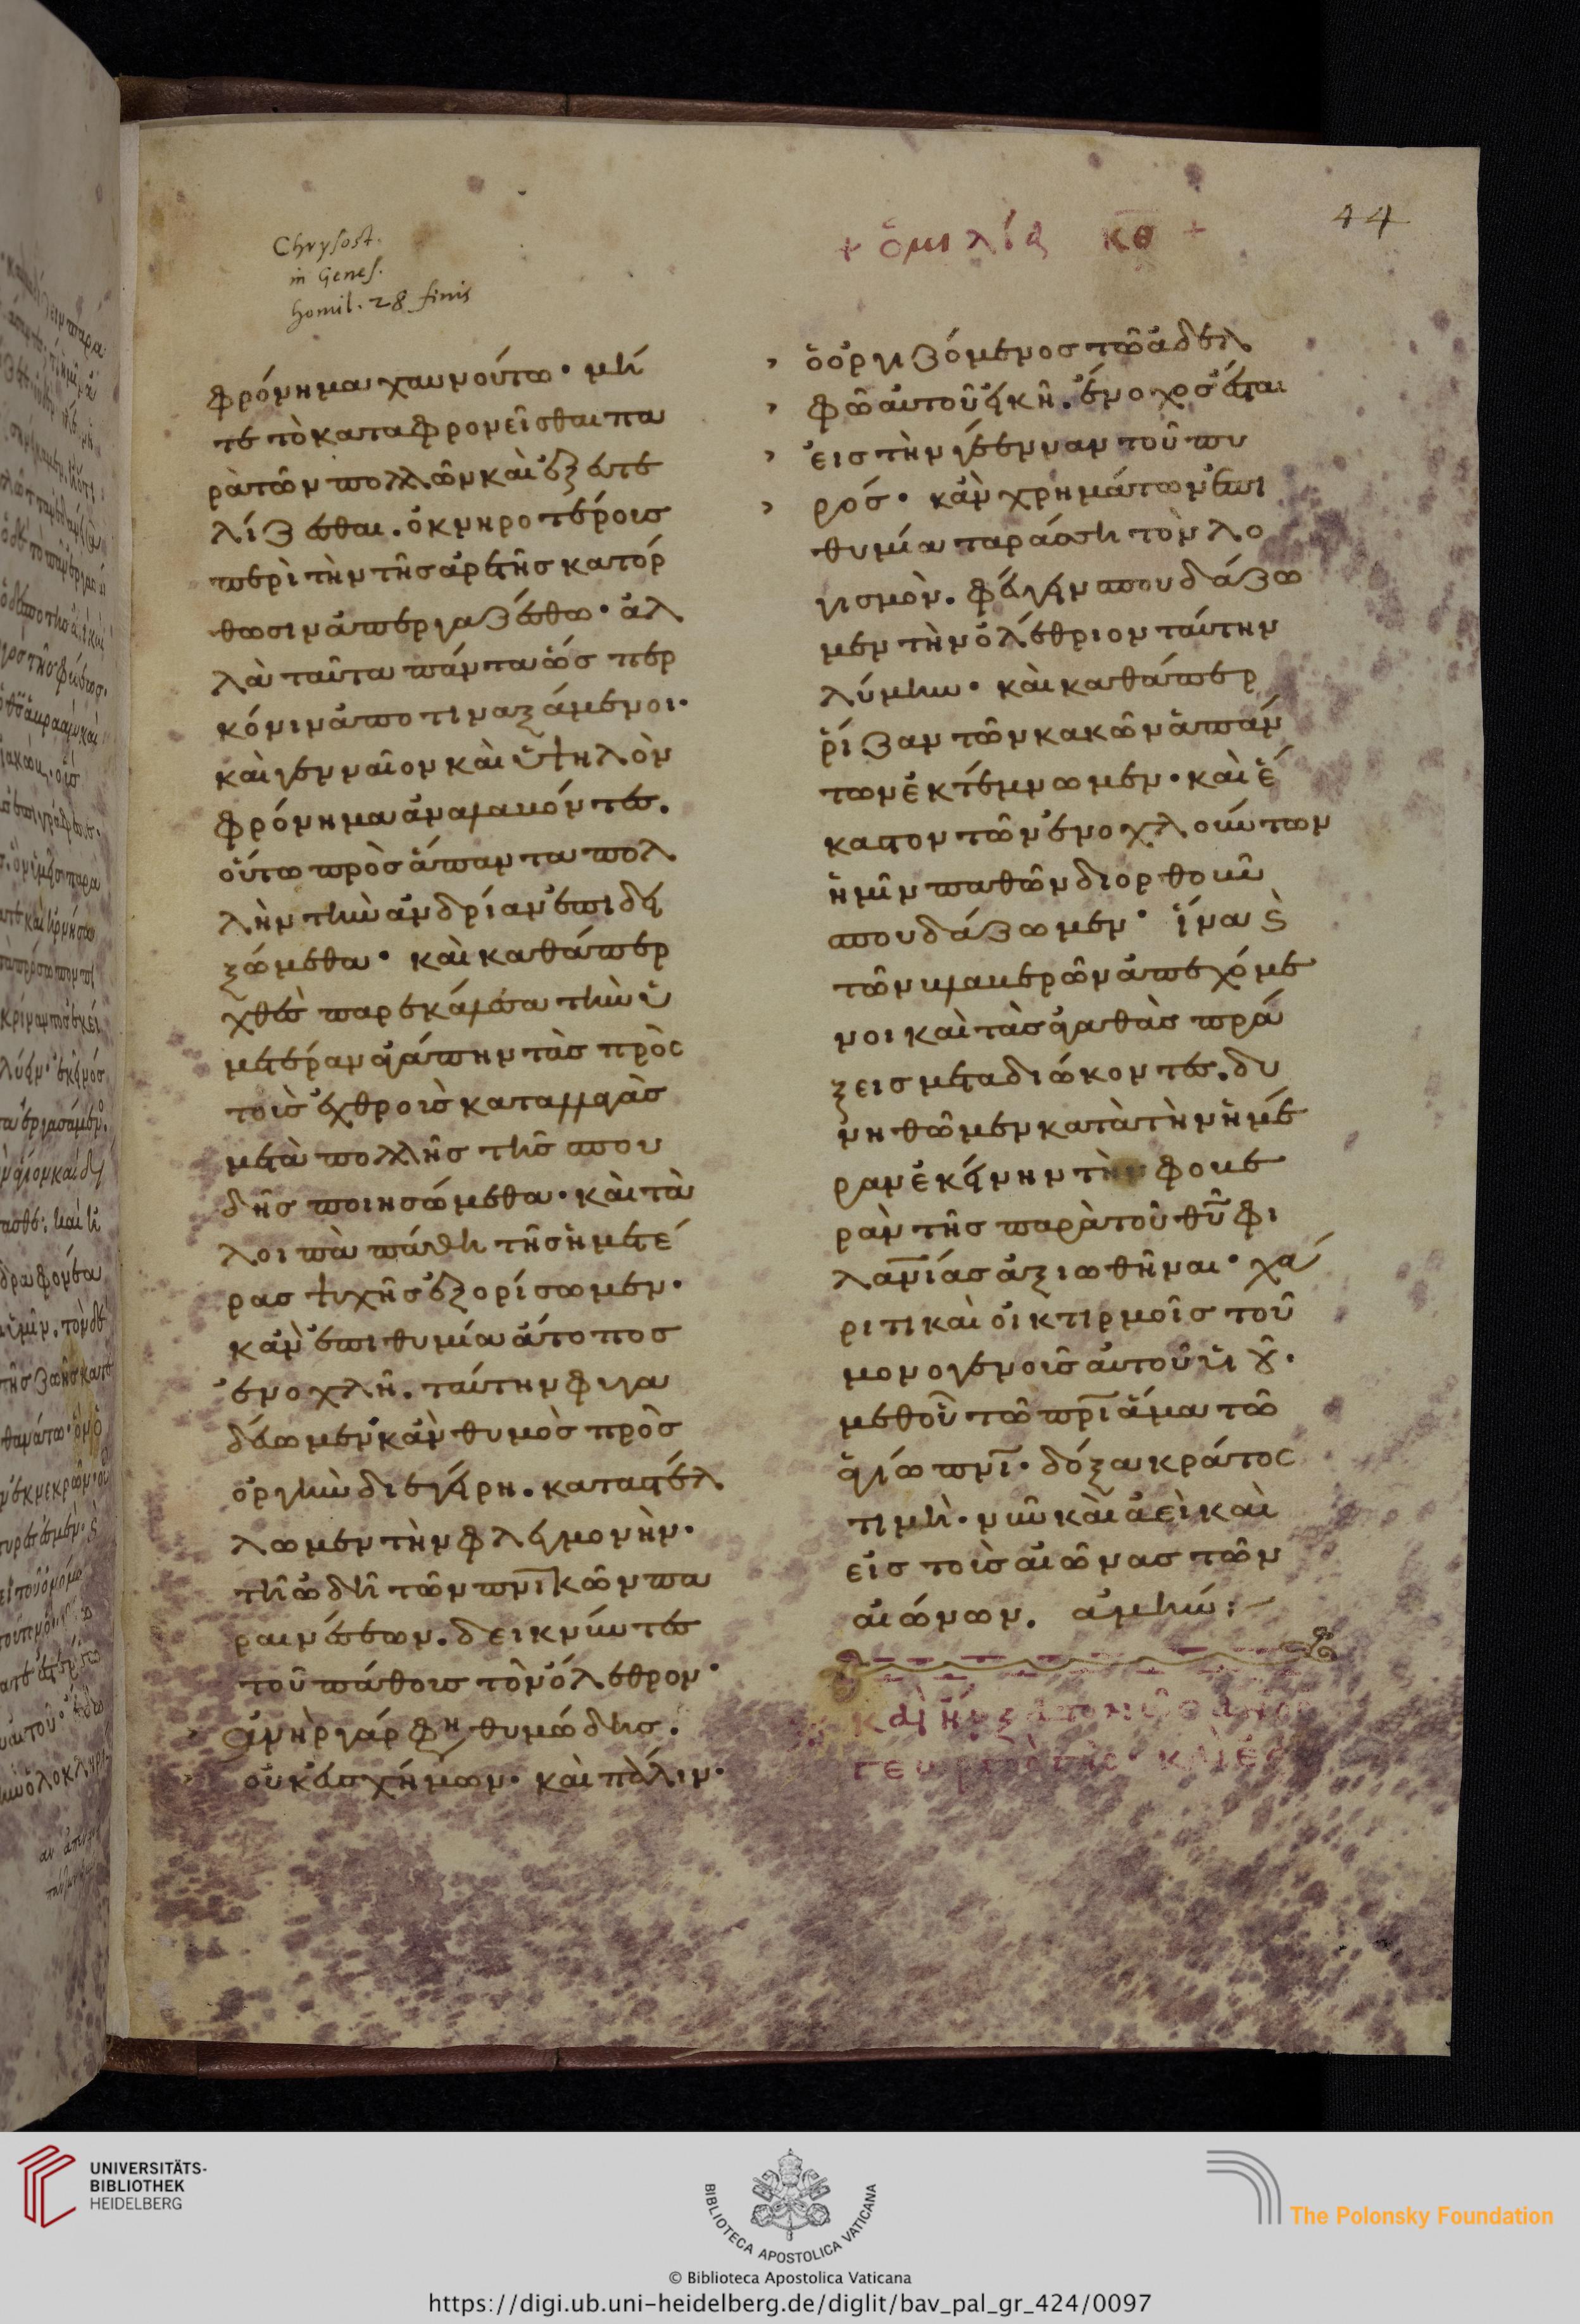 44
Chrysost.
in Genes.
homil. 28 finis
+ ὁμιλία κθ +
φρόνημα χαυνούτω· μή
τε τὸ καταφρονεῖσθαι πα
ρὰ τῶν πολλῶν καὶ ἐξευτε
λίζεσθαι. ὀκνηροτέρους
περὶ τὴν τῆς ἀρετῆς κατόρ
θωσιν ἀπεργαζέσθω· ἀλ
λὰ ταῦτα πάντα ὥσπερ
κόνιν ἀποτιναξάμενοι·
καὶ γενναῖον καὶ ὑψηλὸν
φρόνημα ἀναλαβόντες.
οὕτω πρὸς ἅπαντα πολ
λὴν τὴν ἀνδρίαν ἐπιδει
ξώμεθα· καὶ καθάπερ
χθὲς παρεκάλεσα τὴν ὑ
μετέραν ἀγάπην τὰς πρὸς
τοὺς ἐχθροὺς καταλλαγὰς
μετὰ πολλῆς τῆς σπου
δῆς ποιησώμεθα· καὶ τὰ
λοιπὰ πάθη τῆς ἡμετέ
ρας ψυχῆς ἐξορίσωμεν·
κἂν ἐπιθυμία ἄτοπος
ἐνοχλῆ. ταύτην φυγα
δεύωμεν κἂν θυμὸς πρὸς
ὀργὴν διεγείρη. καταστέλ
λωμεν τὴν φλεγμονὴν·
τῆ ὠδῆ τῶν πνικῶν πα
ραινέσεων. δεικνύντες
τοῦ πάθους τὸν ὄλεθρον·
ἀνὴρ γάρ φη θυμώδης.
οὐκ εὐσχήμων· καὶ πάλιν·
ὁ ὀργιζόμενος τῶ ἀδελ
φῶ αὐτοῦ εἰκῆ. ἔνοχος ἔσται
εἰς τὴν γέενναν τοῦ πυ
ρός· κἂν χρημάτων ἐπι
θυμία ταράσση τὸν λο
γισμὸν. φεύγειν σπουδάζω
μεν τὴν ὀλέθριον ταύτην
λύμην· καὶ καθάπερ
ῥίζαν τῶν κακῶν ἁπάν
των ἐκτέμνωμεν· καὶ ἕ
καστον τῶν ἐνοχλούντων
ἡμῖν παθῶν διορθοῦν
σπουδάζωμεν· ἵνα καὶ
τῶν βλαβερῶν ἀπεχόμε
νοι καὶ τὰς ἀγαθὰς πρά
ξεις μεταδιώκοντες. δυ
νηθῶμεν κατὰ τὴν ἡμέ
ραν ἐκείνην τὴν φοβε
ρὰν τῆς παρὰ τοῦ θυ φι
λανίας ἀξιωθῆναι· χά
ριτι καὶ οἰκτιρμοῖς τοῦ
μονογενοῦς αὐτοῦ υἱοῦ·
μεθοὗ τῶ πρι ἅμα τῶ
ἁγίω πνι· δόξα κράτος
τιμὴ· νῦν καὶ ἀεὶ καὶ
εἰς τοὺς αἰῶνας τῶν
αἰώνων. ἀμήν:
UNIVERSITÄTS-
BIBLIOTHEK
HEIDELBERG
BIBLIOTECA APOSTOLICA VATICANA
The Polonsky Foundation
© Biblioteca Apostolica Vaticana
https://digi.ub.uni-heidelberg.de/diglit/bav_pal_gr_424/0097